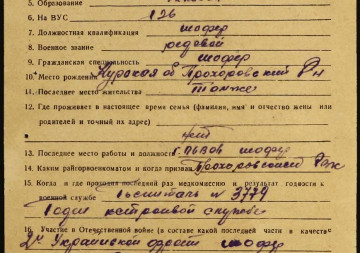 5. Образование
6. На ВУС 126
7. Должностная квалификация шофер
8. Военное звание рядовой
9. Гражданская специальность шофер
10. Место рождения Курская об Прохоровский Рн
11. Последнее место жительства Там же
12. Где проживает в настоящее время семья (фамилия, имя и отчество жены или
родителей и точный их адрес)
нет
13. Последнее место работы и должность г. Львов шофер
14. Каким райгорвоенкоматом и когда призван Прохоровский
15. Когда и где проходил последний раз медкомиссию и результат годности к
военной службе госпиталь № 3779
Годен к строевой службе
16. Участие в Отечественной войне (в составе какой последней части и в качестве
2й Украинский фронт шофер